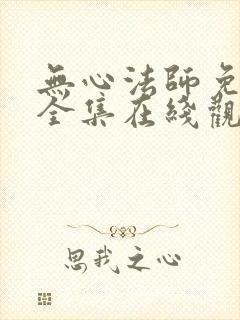 無心法師免
全集在綫觀
思我之心